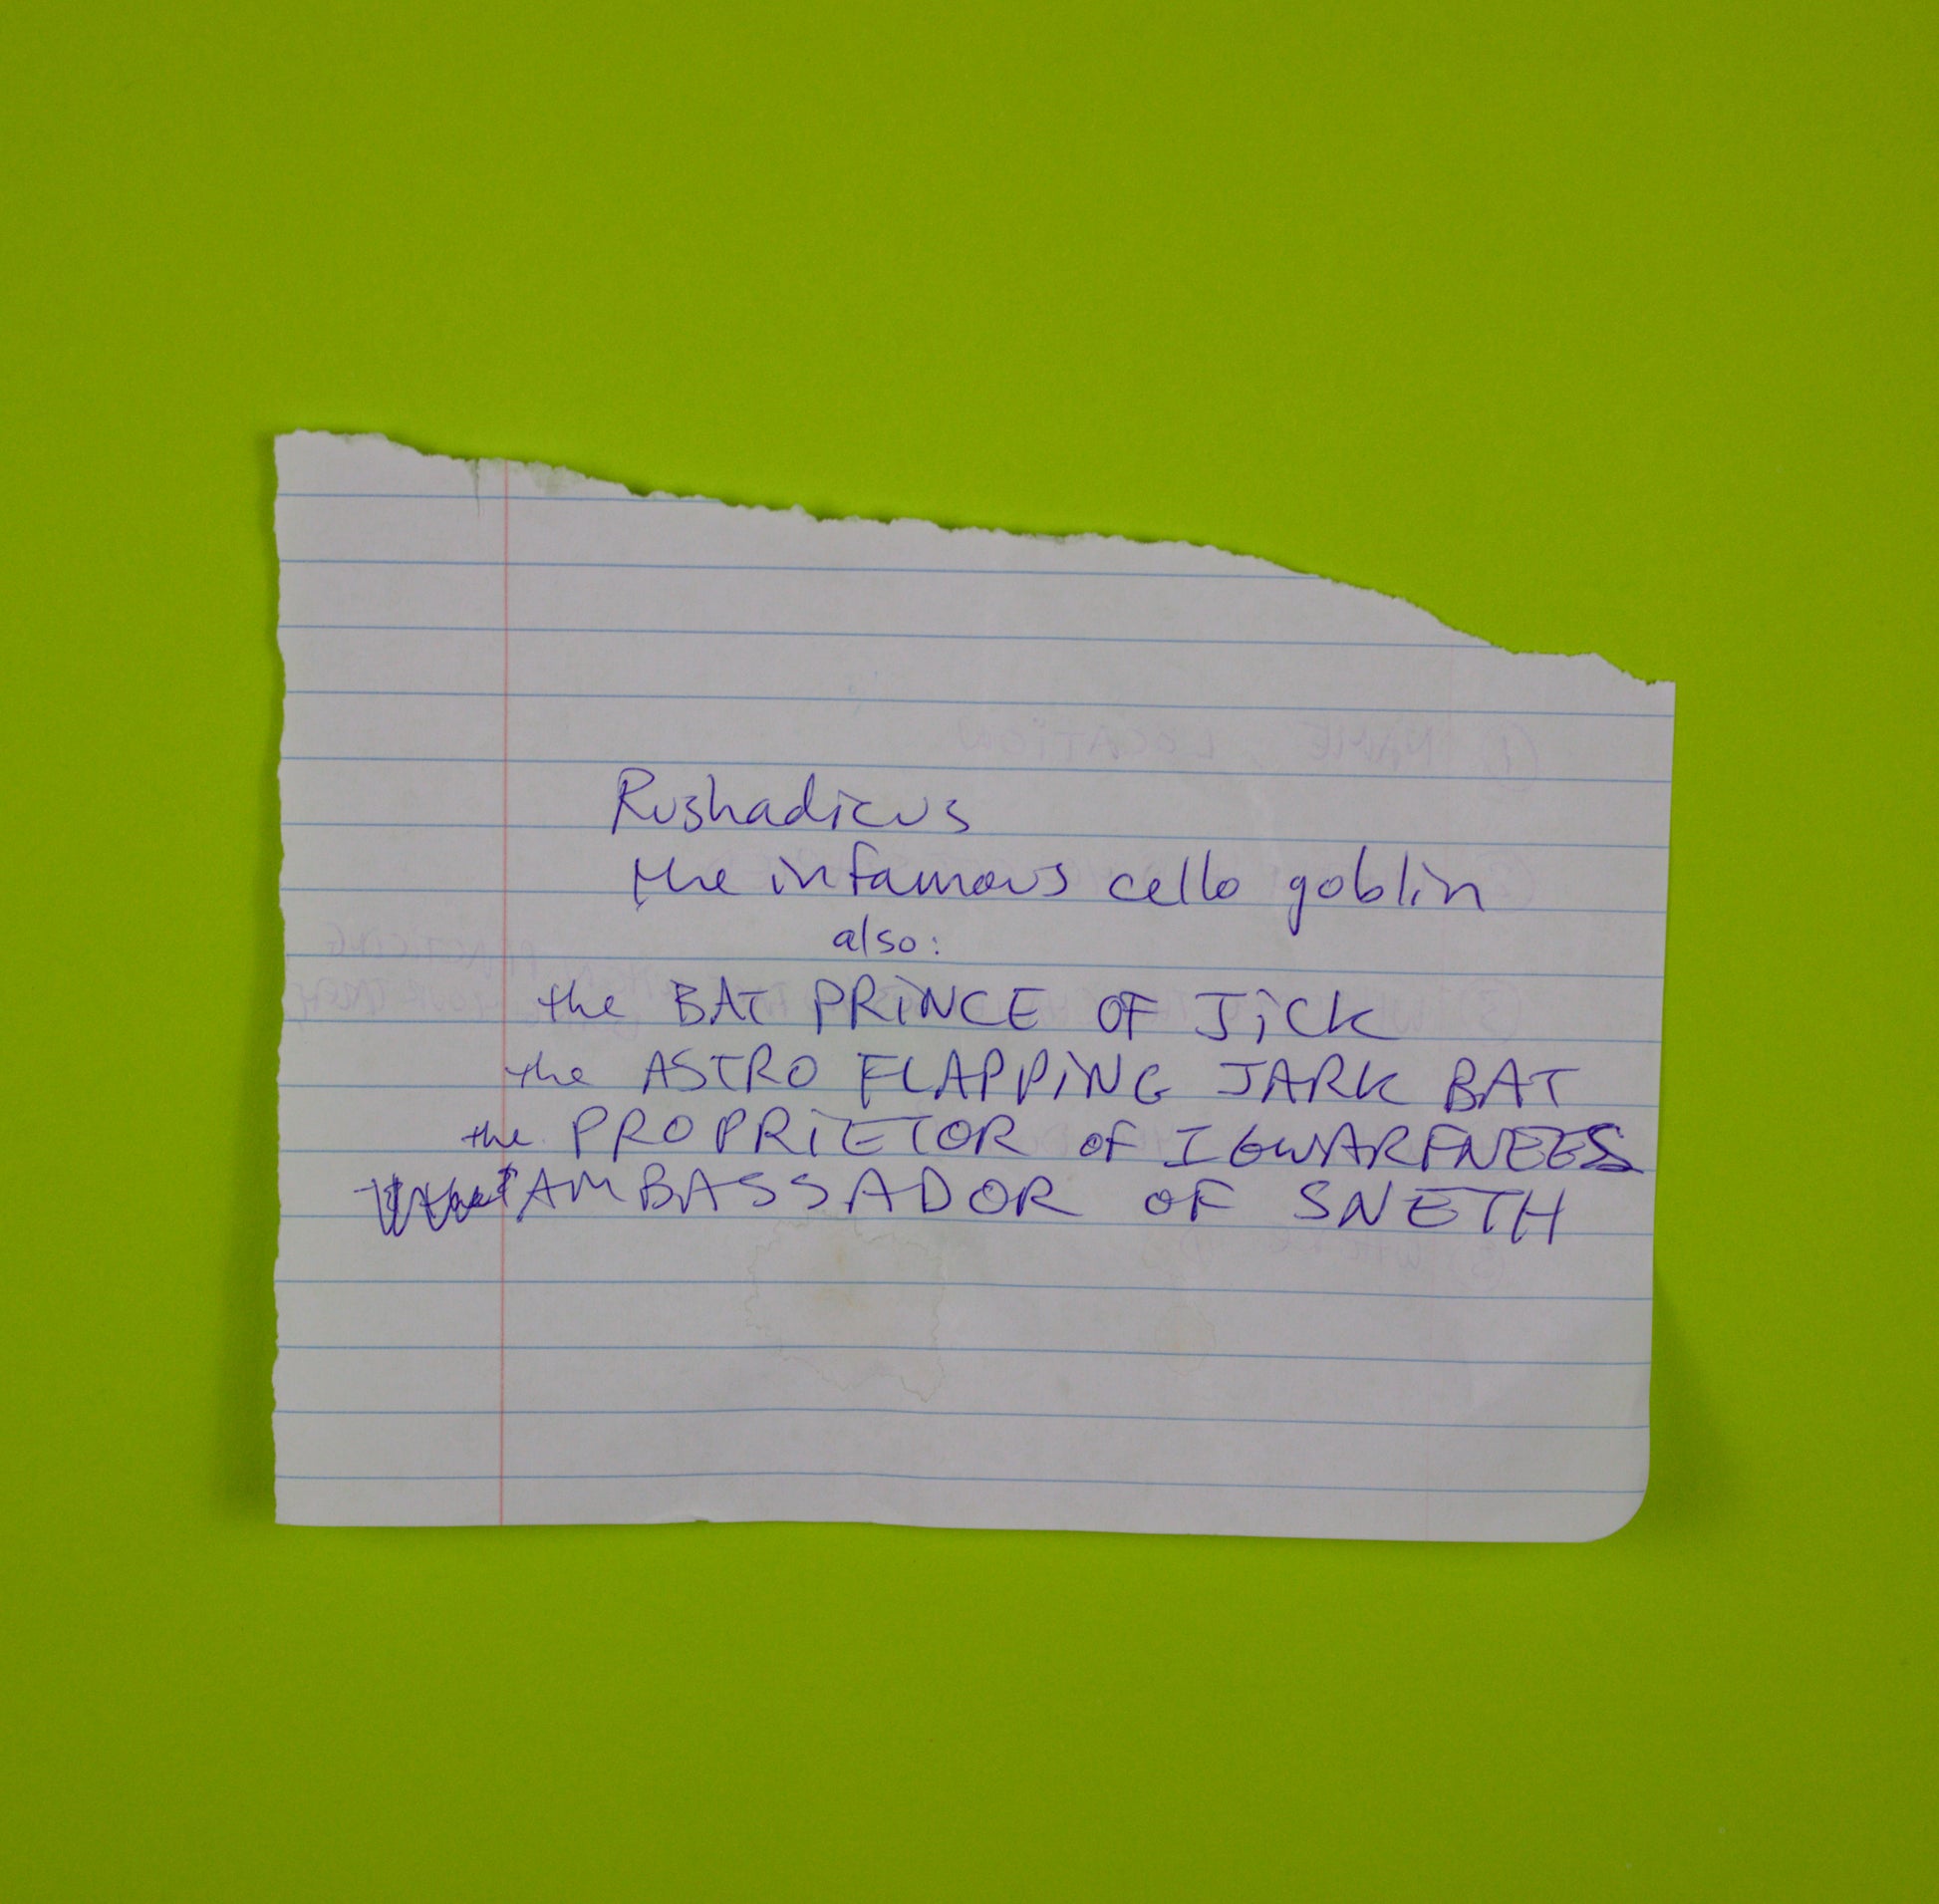 Rushadicus
the infamous cello goblin
also:
the BAT PRINCE OF JICK
the ASTRO FLAPPING JARK BAT
the PROPRIETOR OF IGWARFNEES
AMBASSADOR OF SNETH
① NAME, LOCATION